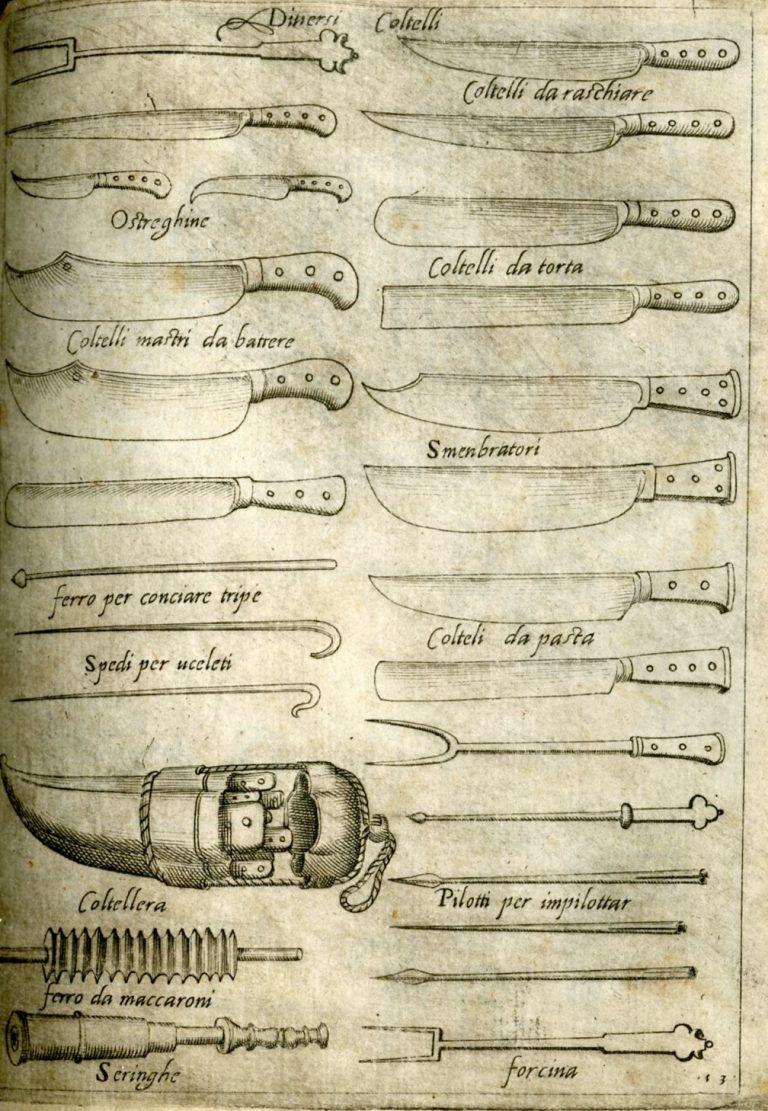 Diversi Coltelli
Coltelli da raschiare
Ostreghine
Coltelli da torta
Coltelli mastri da battere
Smenbratori
ferro per conciare tripe
Colteli da pasta
Spedi per uceleti
Coltellera
Pilotti per impilottar
ferro da maccaroni
Seringhe
forcina
13